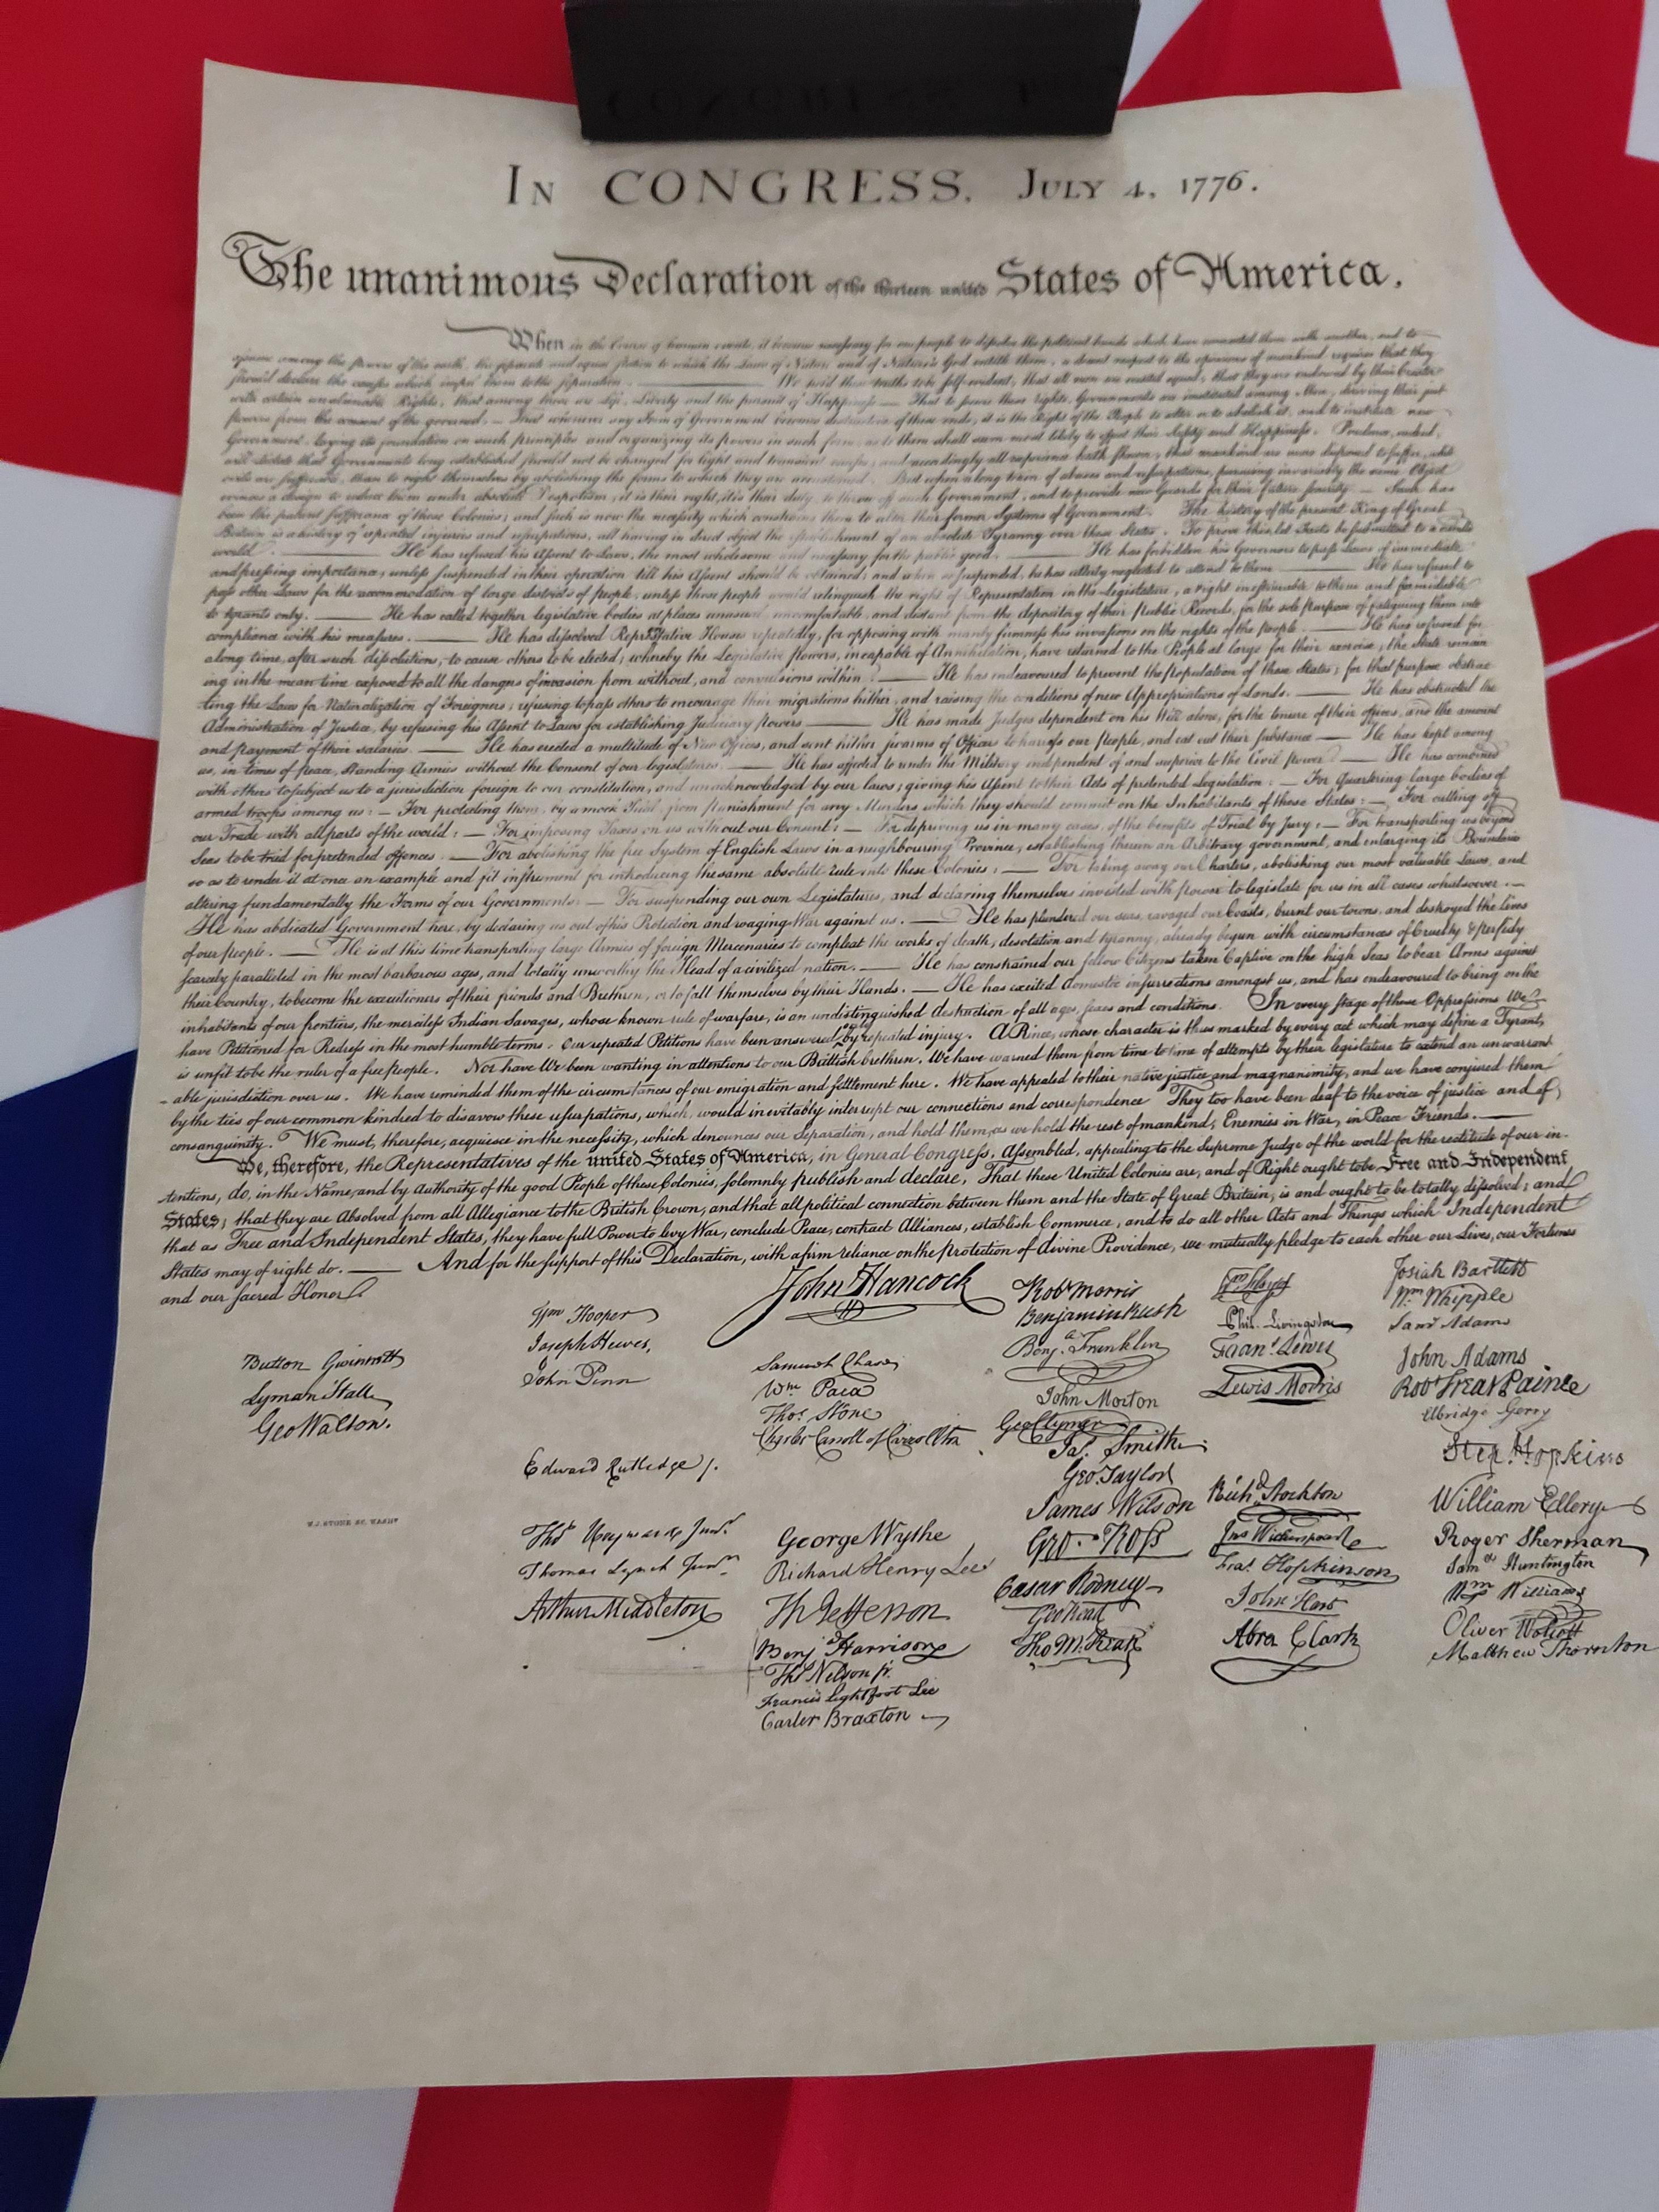 IN CONGRESS, JULY 4, 1776.
The unanimous Declaration of the thirteen united States of America,
When in the Course of human events, it becomes necessary for one people to dissolve the political bands which have connected them with another, and to
assume among the powers of the earth, the separate and equal station to which the Laws of Nature and of Nature's God entitle them, a decent respect to the opinions of mankind requires that they
should declare the causes which impel them to the separation. ——— We hold these truths to be self-evident, that all men are created equal, that they are endowed by their Creator
with certain unalienable Rights, that among these are Life, Liberty and the pursuit of Happiness — That to secure these rights, Governments are instituted among Men, deriving their just
powers from the consent of the governed, — That whenever any Form of Government becomes destructive of these ends, it is the Right of the People to alter or to abolish it, and to institute new
Government, laying its foundation on such principles and organizing its powers in such form, as to them shall seem most likely to effect their Safety and Happiness. Prudence, indeed,
will dictate that Governments long established should not be changed for light and transient causes; and accordingly all experience hath shewn, that mankind are more disposed to suffer, while
evils are sufferable, than to right themselves by abolishing the forms to which they are accustomed. But when a long train of abuses and usurpations, pursuing invariably the same Object
evinces a design to reduce them under absolute Despotism, it is their right, it is their duty, to throw off such Government, and to provide new Guards for their future security. — Such has
been the patient sufferance of these Colonies; and such is now the necessity which constrains them to alter their former Systems of Government. The history of the present King of Great
Britain is a history of repeated injuries and usurpations, all having in direct object the establishment of an absolute Tyranny over these States. To prove this, let Facts be submitted to a candid
world. ——— He has refused his Assent to Laws, the most wholesome and necessary for the public good. ——— He has forbidden his Governors to pass Laws of immediate
and pressing importance, unless suspended in their operation till his Assent should be obtained; and when so suspended, he has utterly neglected to attend to them. ——— He has refused to
pass other Laws for the accommodation of large districts of people, unless those people would relinquish the right of Representation in the Legislature, a right inestimable to them and formidable
to tyrants only. ——— He has called together legislative bodies at places unusual, uncomfortable, and distant from the depository of their Public Records, for the sole purpose of fatiguing them into
compliance with his measures. ——— He has dissolved Representative Houses repeatedly, for opposing with manly firmness his invasions on the rights of the people. ——— He has refused for
a long time, after such dissolutions, to cause others to be elected; whereby the Legislative powers, incapable of Annihilation, have returned to the People at large for their exercise; the State remain
ing in the mean time exposed to all the dangers of invasion from without, and convulsions within. ——— He has endeavoured to prevent the population of these States; for that purpose obstruc
ting the Laws for Naturalization of Foreigners; refusing to pass others to encourage their migrations hither, and raising the conditions of new Appropriations of Lands. ——— He has obstructed the
Administration of Justice, by refusing his Assent to Laws for establishing Judiciary powers. ——— He has made Judges dependent on his Will alone, for the tenure of their offices, and the amount
and payment of their salaries. ——— He has erected a multitude of New Offices, and sent hither swarms of Officers to harrass our people, and eat out their substance. — He has kept among
us, in times of peace, Standing Armies without the Consent of our legislatures. ——— He has affected to render the Military independent of and superior to the Civil power. ——— He has combined
with others to subject us to a jurisdiction foreign to our constitution, and unacknowledged by our laws; giving his Assent to their Acts of pretended Legislation: — For Quartering large bodies of
armed troops among us: — For protecting them, by a mock Trial, from punishment for any Murders which they should commit on the Inhabitants of these States: — For cutting off
our Trade with all parts of the world: — For imposing Taxes on us without our Consent: — For depriving us in many cases, of the benefits of Trial by Jury: — For transporting us beyond
Seas to be tried for pretended offences. — For abolishing the free System of English Laws in a neighbouring Province, establishing therein an Arbitrary government, and enlarging its Boundaries
so as to render it at once an example and fit instrument for introducing the same absolute rule into these Colonies: — For taking away our Charters, abolishing our most valuable Laws, and
altering fundamentally the Forms of our Governments: — For suspending our own Legislatures, and declaring themselves invested with power to legislate for us in all cases whatsoever. —
He has abdicated Government here, by declaring us out of his Protection and waging War against us. — He has plundered our seas, ravaged our Coasts, burnt our towns, and destroyed the lives
of our people. — He is at this time transporting large Armies of foreign Mercenaries to compleat the works of death, desolation and tyranny, already begun with circumstances of Cruelty & perfidy
scarcely paralleled in the most barbarous ages, and totally unworthy the Head of a civilized nation. — He has constrained our fellow Citizens taken Captive on the high Seas to bear Arms against
their Country, to become the executioners of their friends and Brethren, or to fall themselves by their Hands. — He has excited domestic insurrections amongst us, and has endeavoured to bring on the
inhabitants of our frontiers, the merciless Indian Savages, whose known rule of warfare, is an undistinguished destruction of all ages, sexes and conditions. In every stage of these Oppressions We
have Petitioned for Redress in the most humble terms: Our repeated Petitions have been answered only by repeated injury. A Prince, whose character is thus marked by every act which may define a Tyrant,
is unfit to be the ruler of a free people. Nor have We been wanting in attentions to our Brittish brethren. We have warned them from time to time of attempts by their legislature to extend an unwarrant
-able jurisdiction over us. We have reminded them of the circumstances of our emigration and settlement here. We have appealed to their native justice and magnanimity, and we have conjured them
by the ties of our common kindred to disavow these usurpations, which, would inevitably interrupt our connections and correspondence They too have been deaf to the voice of justice and of
consanguinity. We must, therefore, acquiesce in the necessity, which denounces our Separation, and hold them, as we hold the rest of mankind, Enemies in War, in Peace Friends. ———
We, therefore, the Representatives of the united States of America, in General Congress, Assembled, appealing to the Supreme Judge of the world for the rectitude of our in-
tentions, do, in the Name, and by Authority of the good People of these Colonies, solemnly publish and declare, That these United Colonies are, and of Right ought to be Free and Independent
States; that they are Absolved from all Allegiance to the British Crown, and that all political connection between them and the State of Great Britain, is and ought to be totally dissolved; and
that as Free and Independent States, they have full Power to levy War, conclude Peace, contract Alliances, establish Commerce, and to do all other Acts and Things which Independent
States may of right do. ——— And for the support of this Declaration, with a firm reliance on the protection of divine Providence, we mutually pledge to each other our Lives, our Fortunes
and our sacred Honor.
Button Gwinnett
Lyman Hall
Geo Walton.
W.J. STONE SC. WASHN
Wm Hooper
Joseph Hewes,
John Penn
Edward Rutledge /.
Thos Heyward Junr.
Thomas Lynch Junr.
Arthur Middleton
John Hancock
Samuel Chase
Wm Paca
Thos Stone
Charles Carroll of Carrollton
George Wythe
Richard Henry Lee
Th Jefferson
Benj Harrison
Thos Nelson jr.
Francis Lightfoot Lee
Carter Braxton
Robt Morris
Benjamin Rush
Benj. Franklin
John Morton
Geo Clymer
Jas. Smith
Geo. Taylor
James Wilson
Geo. Ross
Caesar Rodney
Geo Read
Tho M:Kean
Wm Floyd
Phil. Livingston
Frans. Lewis
Lewis Morris
Richd. Stockton
Jno Witherspoon
Fras. Hopkinson
John Hart
Abra Clark
Josiah Bartlett
Wm Whipple
Saml Adams
John Adams
Robt Treat Paine
Elbridge Gerry
Step. Hopkins
William Ellery
Roger Sherman
Saml Huntington
Wm Williams
Oliver Wolcott
Matthew Thornton